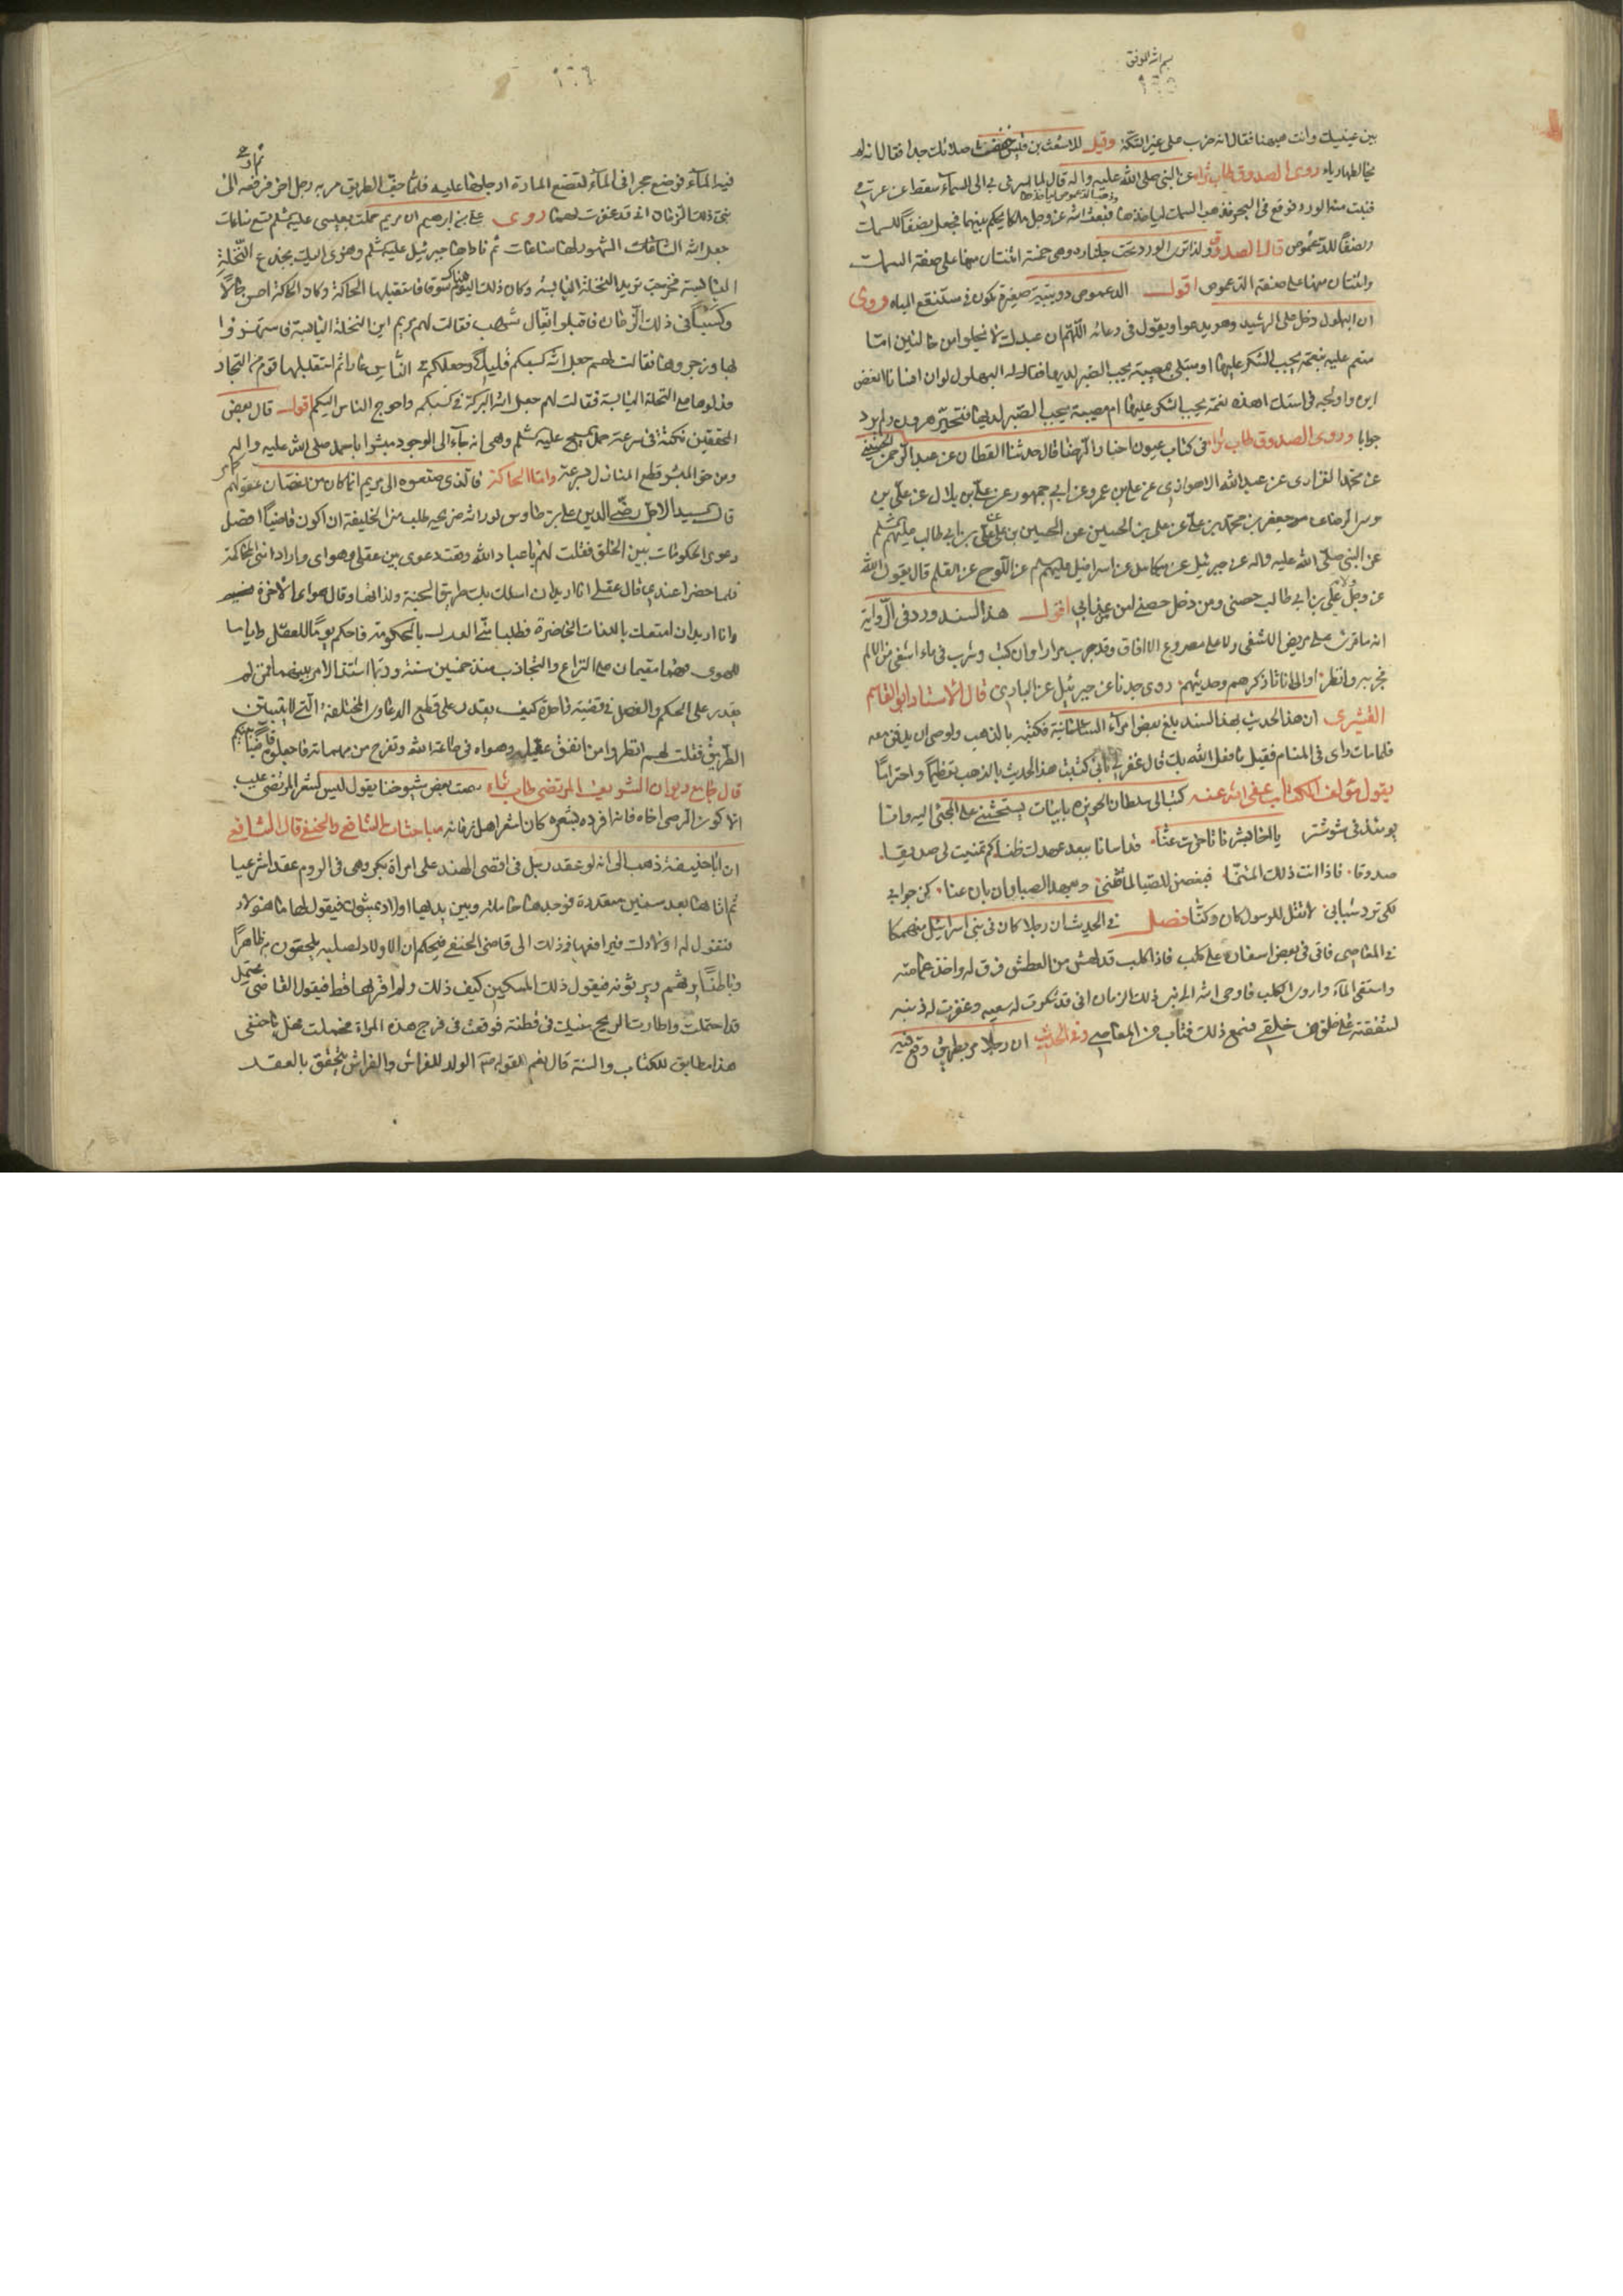 بسم الله الموفق
١٦٥
بين عينيك وانت صبهنا فقال انه ضرب على غير السكة وقيل للاشعث بن قيس خففت صلاتك جدا فقال انه لم
يخالطها رياء روى الصدوق طاب ثراه عن النبي صلى الله عليه واله قال لما اسرى بي الى السماء سقط من عرقي
وذهب الدعموص لياخذها
فنبت منه الورد فوقع في البحر فذهب السمك لياخذها فبعث الله عز وجل ملكا يحكم بينهما فجعل نصفًا للسمك
ونصفًا للدعموص قال الصدوق ولذا ترى الورد تحت جلناره وهي خمسة اثنتان منها على صفة السمك
واثنتان منها على صفة الدعموص اقول الدعموص دويبة صغيرة تكون في مستنقع المياه وروى
ان البهلول دخل على الرشيد وهو يدعوا ويقول في دعائه اللهم ان عبدك لا يخلوا من حالتين اما
منعم عليه بنعمة يجب الشكر عليها او مبتلى بمصيبة يجب الصبر لديها فقال له البهلول لو ان انسانا العض
اير واولجه في استك اهذه نعمة يجب الشكر عليها ام مصيبة يجب الصبر لديها فتحير هرون ولم يرد
جوابا وروى الصدوق طاب ثراه في كتاب عيون اخبار الرضا قال حدثنا القطان عن عبد الرحمن الحسيني
عن محمد الفزارى عن عبد الله الاهوازى عن علي بن عمرو عن ابن جمهور عن علي بن بلال عن علي بن
موسى الرضا عن موسى جعفر بن محمد بن علي عن علي بن الحسين عن الحسين بن علي عن علي بن ابي طالب عليهم السلم
عن النبي صلى الله عليه واله عن جبرئيل عن ميكائيل عن اسرافيل عليهم السلم عن اللوح عن القلم قال يقول الله
عز وجل ولاية علي بن ابي طالب حصني ومن دخل حصني امن عذابي اقول هذا السند ورد في الرواية
انه ما قرئ على مريض الا شفى ولا على مصروع الا افاق وقد جرب مرارا وان كتب وشرب في ماء اشفى من الالم
قال الاستاد ابو القاسم
القشيري ان هذا الحديث بهذا السند بلغ بعض امراء السامانية فكتبه بالذهب واوصى ان يدفن معه
فلما مات راى في المنام فقيل ما فعل الله بك قال غفر لي باني كتبت هذا الحديث بالذهب تعظيمًا واحترامًا
يقول مؤلف الكتاب عفى الله عنه كتب الي سلطان الحويزه بابيات يستحثني على المجئ اليه وانا
يومئذ في شوشتر
في الحديث ان رجلا كان في بني اسرائيل منهمكا
في المعاصى فاتى في بعض اسفاره على كلب فاذا الكلب قد لهث من العطش فرق له واخذ عمامته
واستقى الماء واروى الكلب فاوحى الله الى نبي ذلك الزمان اني قد شكرت له سعيه وغفرت له ذنبه
لشفقته على خلق من خلقي فسمع ذلك فتاب من المعاصي وفي الحديث ان رجلا مر بطريق وقع فيه
١٦٦
فيه الماء فوضع حجرا في الماء لتضع المارة ارجلها عليه فلما جف الطريق مر به رجل اخر فرفعه الى
نبي ذلك الزمان اني قد غفرت لهما روى علي بن ابرهيم ان مريم حملت بعيسى عليه السلم تسع ساعات
جعل الله الساعات الشهور لها ساعات ثم ناداها جبرئيل عليه السلم وهزى اليك بجذع النخلة
اليابسة فخرجت تريد النخلة اليابسة وكان ذلك اليوم سوقا فاستقبلها الحاكة وكان الحاكة
في ذلك الزمان فاقبلوا على بغال شهب فقالت لهم مريم اين النخلة اليابسة فاستهزؤا
بها وزجروها فقالت لهم جعل الله كسبكم قليلا وجعلكم في الناس عارا ثم استقبلها قوم من التجار
فدلوها على النخلة اليابسة فقالت لهم جعل الله البركة في كسبكم واحوج الناس اليكم اقول قال بعض
المحققين نكتة في سرعة حمل المسيح عليه السلم وهي انه جاء الى الوجود مبشرا باحمد صلى الله عليه واله
ومن حق المبشر قطع المنازل بسرعة واما الحاكة فالذى صنعوه الى مريم انما كان من نقصان عقولهم
قال السيد الاجل رضي الدين علي بن طاوس نور الله ضريحه طلب مني الخليفة ان اكون قاضيًا افصل
دعوى الحكومات بين الخلق فقلت لهم يا عباد الله وقعت دعوى بين عقلي وهواى وارادا مني المحاكمة
فلما حضرا عندي قال عقلي انا اريد ان اسلك بك طريق الجنة ولذاتها وقال هواى الاخرة نسيه
وانا اريد ان امتعك باللذات الحاضرة فطلبا مني العدل بالحكومة فاحكم يومًا للعقل واياما
للهوى فهما مقيمان على النزاع والتجاذب منذ خمسين سنة وربما اشتد الامر بينهما فمن لم
يقدر على الحكم والفصل في قضية واحدة كيف يقدر على قطع الدعاوى المختلفة
فقلت لهم انظروا من اتفق عقله وهواه في طاعة الله وتفرغ من مهماته فاجعلوه قاضيًا بينكم
قال جامع ديوان الشريف المرتضى طاب ثراه سمعت بعض شيوخنا يقول ليس لشعر المرتضى عيب
الا كون الرضى اخاه فاذا افرد بشعره كان اشعر اهل زمانه مباحثات الشافعي والحنفي قال الشافعي
ان ابا حنيفة ذهب الى انه لو عقد رجل في اقصى الهند على امراة بكر وهي في الروم عقدا شرعيا
ثم اتاها بعد سنين متعددة فوجدها حاملة وبين يديها اولاد يمشون فيقول لها ما هؤلاء
فتقول له اولادك فيرافعها في ذلك الى قاضي الحنفي فيحكم ان الاولاد لصلبه يلحقون به ظاهرًا
وباطنًا يرثهم ويرثونه فيقول ذلك المسكين كيف ذلك ولم اقربها قط فيقول القاضي يحتمل
قد احتملت واطارت الريح منيك في قطنة فوقعت في فرج هذه المراة فحملت فهل يا حنفي
هذا مطابق للكتاب والسنة قال نعم لقوله الولد للفراش والفراش يتحقق بالعقد